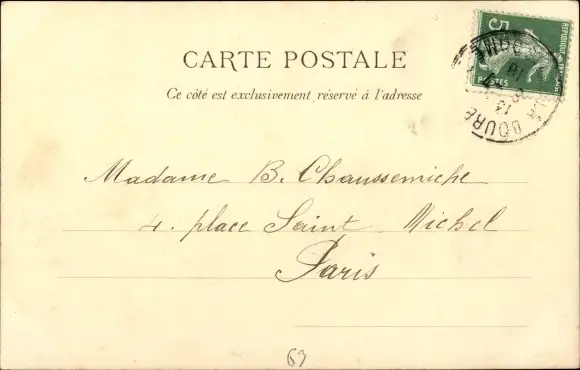 CARTE POSTALE
Ce côté est exclusivement réservé à l'adresse
5
POSTES
LA BOURB
Madame B. Chaussemiche
4. place Saint Michel
Paris
63